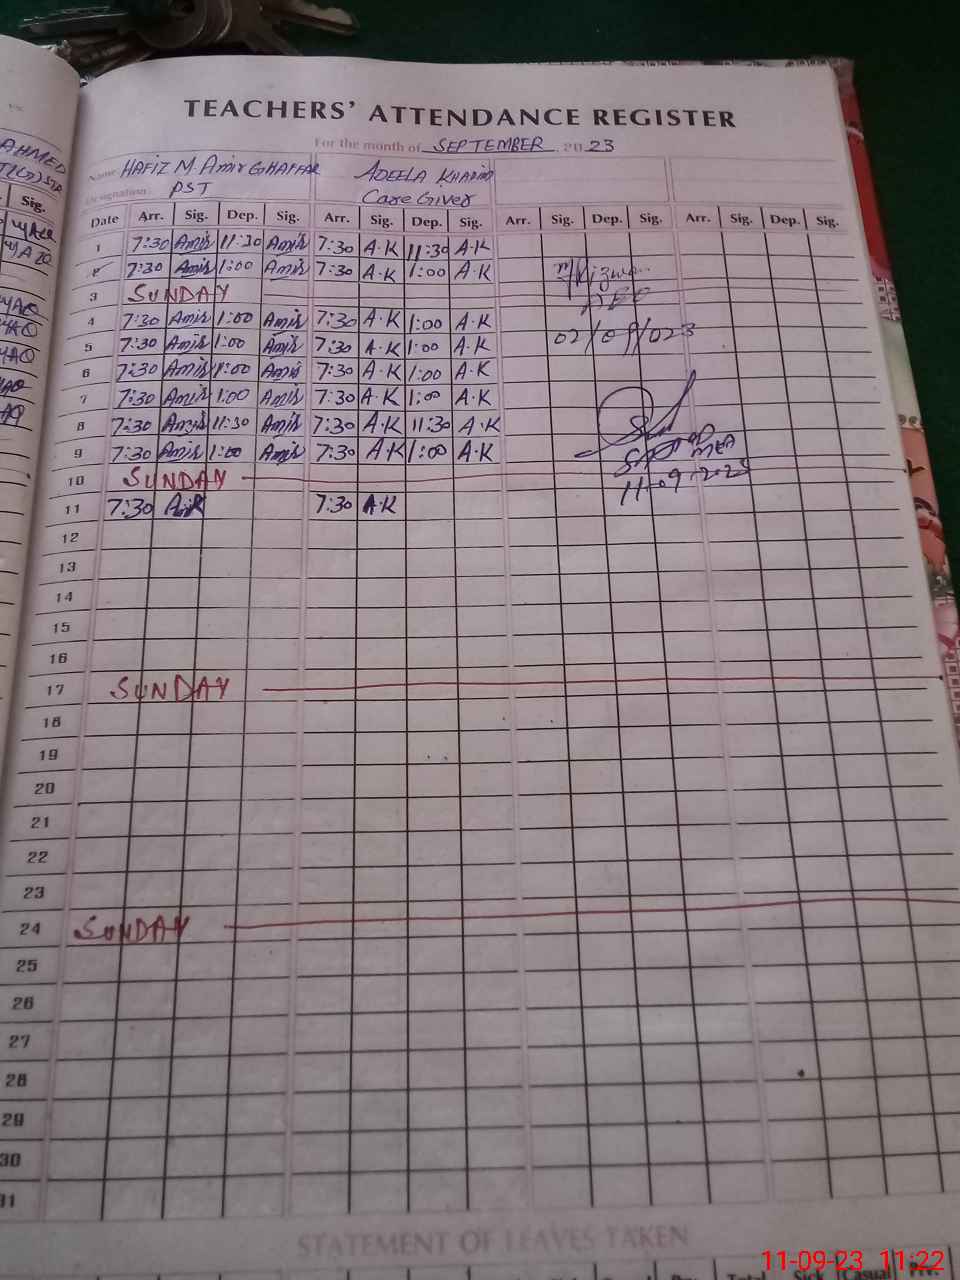 TEACHERS' ATTENDANCE REGISTER
For the month of SEPTEMBER 2023
Name HAFIZ M. Amir GHAFFAR ADEELA KHADIM
Designation PST Care Giver
Date Arr. Sig. Dep. Sig. Arr. Sig. Dep. Sig. Arr. Sig. Dep. Sig. Arr. Sig. Dep. Sig.
1 7:30 Amir 11:30 Amir 7:30 A.K 11:30 A.K
2 7:30 Amir 1:00 Amir 7:30 A.K 1:00 A.K
3 SUNDAY
4 7:30 Amir 1:00 Amir 7:30 A.K 1:00 A.K
5 7:30 Amir 1:00 Amir 7:30 A.K 1:00 A.K 02/09/023
6 7:30 Amir 1:00 Amir 7:30 A.K 1:00 A.K
7 7:30 Amir 1:00 Amir 7:30 A.K 1:00 A.K
8 7:30 Amir 11:30 Amir 7:30 A.K 11:30 A.K
9 7:30 Amir 1:00 Amir 7:30 A.K 1:00 A.K
10 SUNDAY 11.09.2023
11 7:30 7:30 A.K
12
13
14
15
16
17 SUNDAY
18
19
20
21
22
23
24 SUNDAY
25
26
27
28
29
30
31
STATEMENT OF LEAVES TAKEN
11-09-23 11:22
AHMED
Sig.